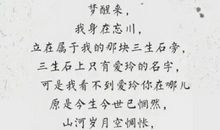 梦醒来,
我身在忘川,
立在属于我的那块三生石旁,
三生石上只有爱玲的名字,
可是我看不到爱玲你在哪儿
原是今生今世已惘然,
山河岁月空惆怅,